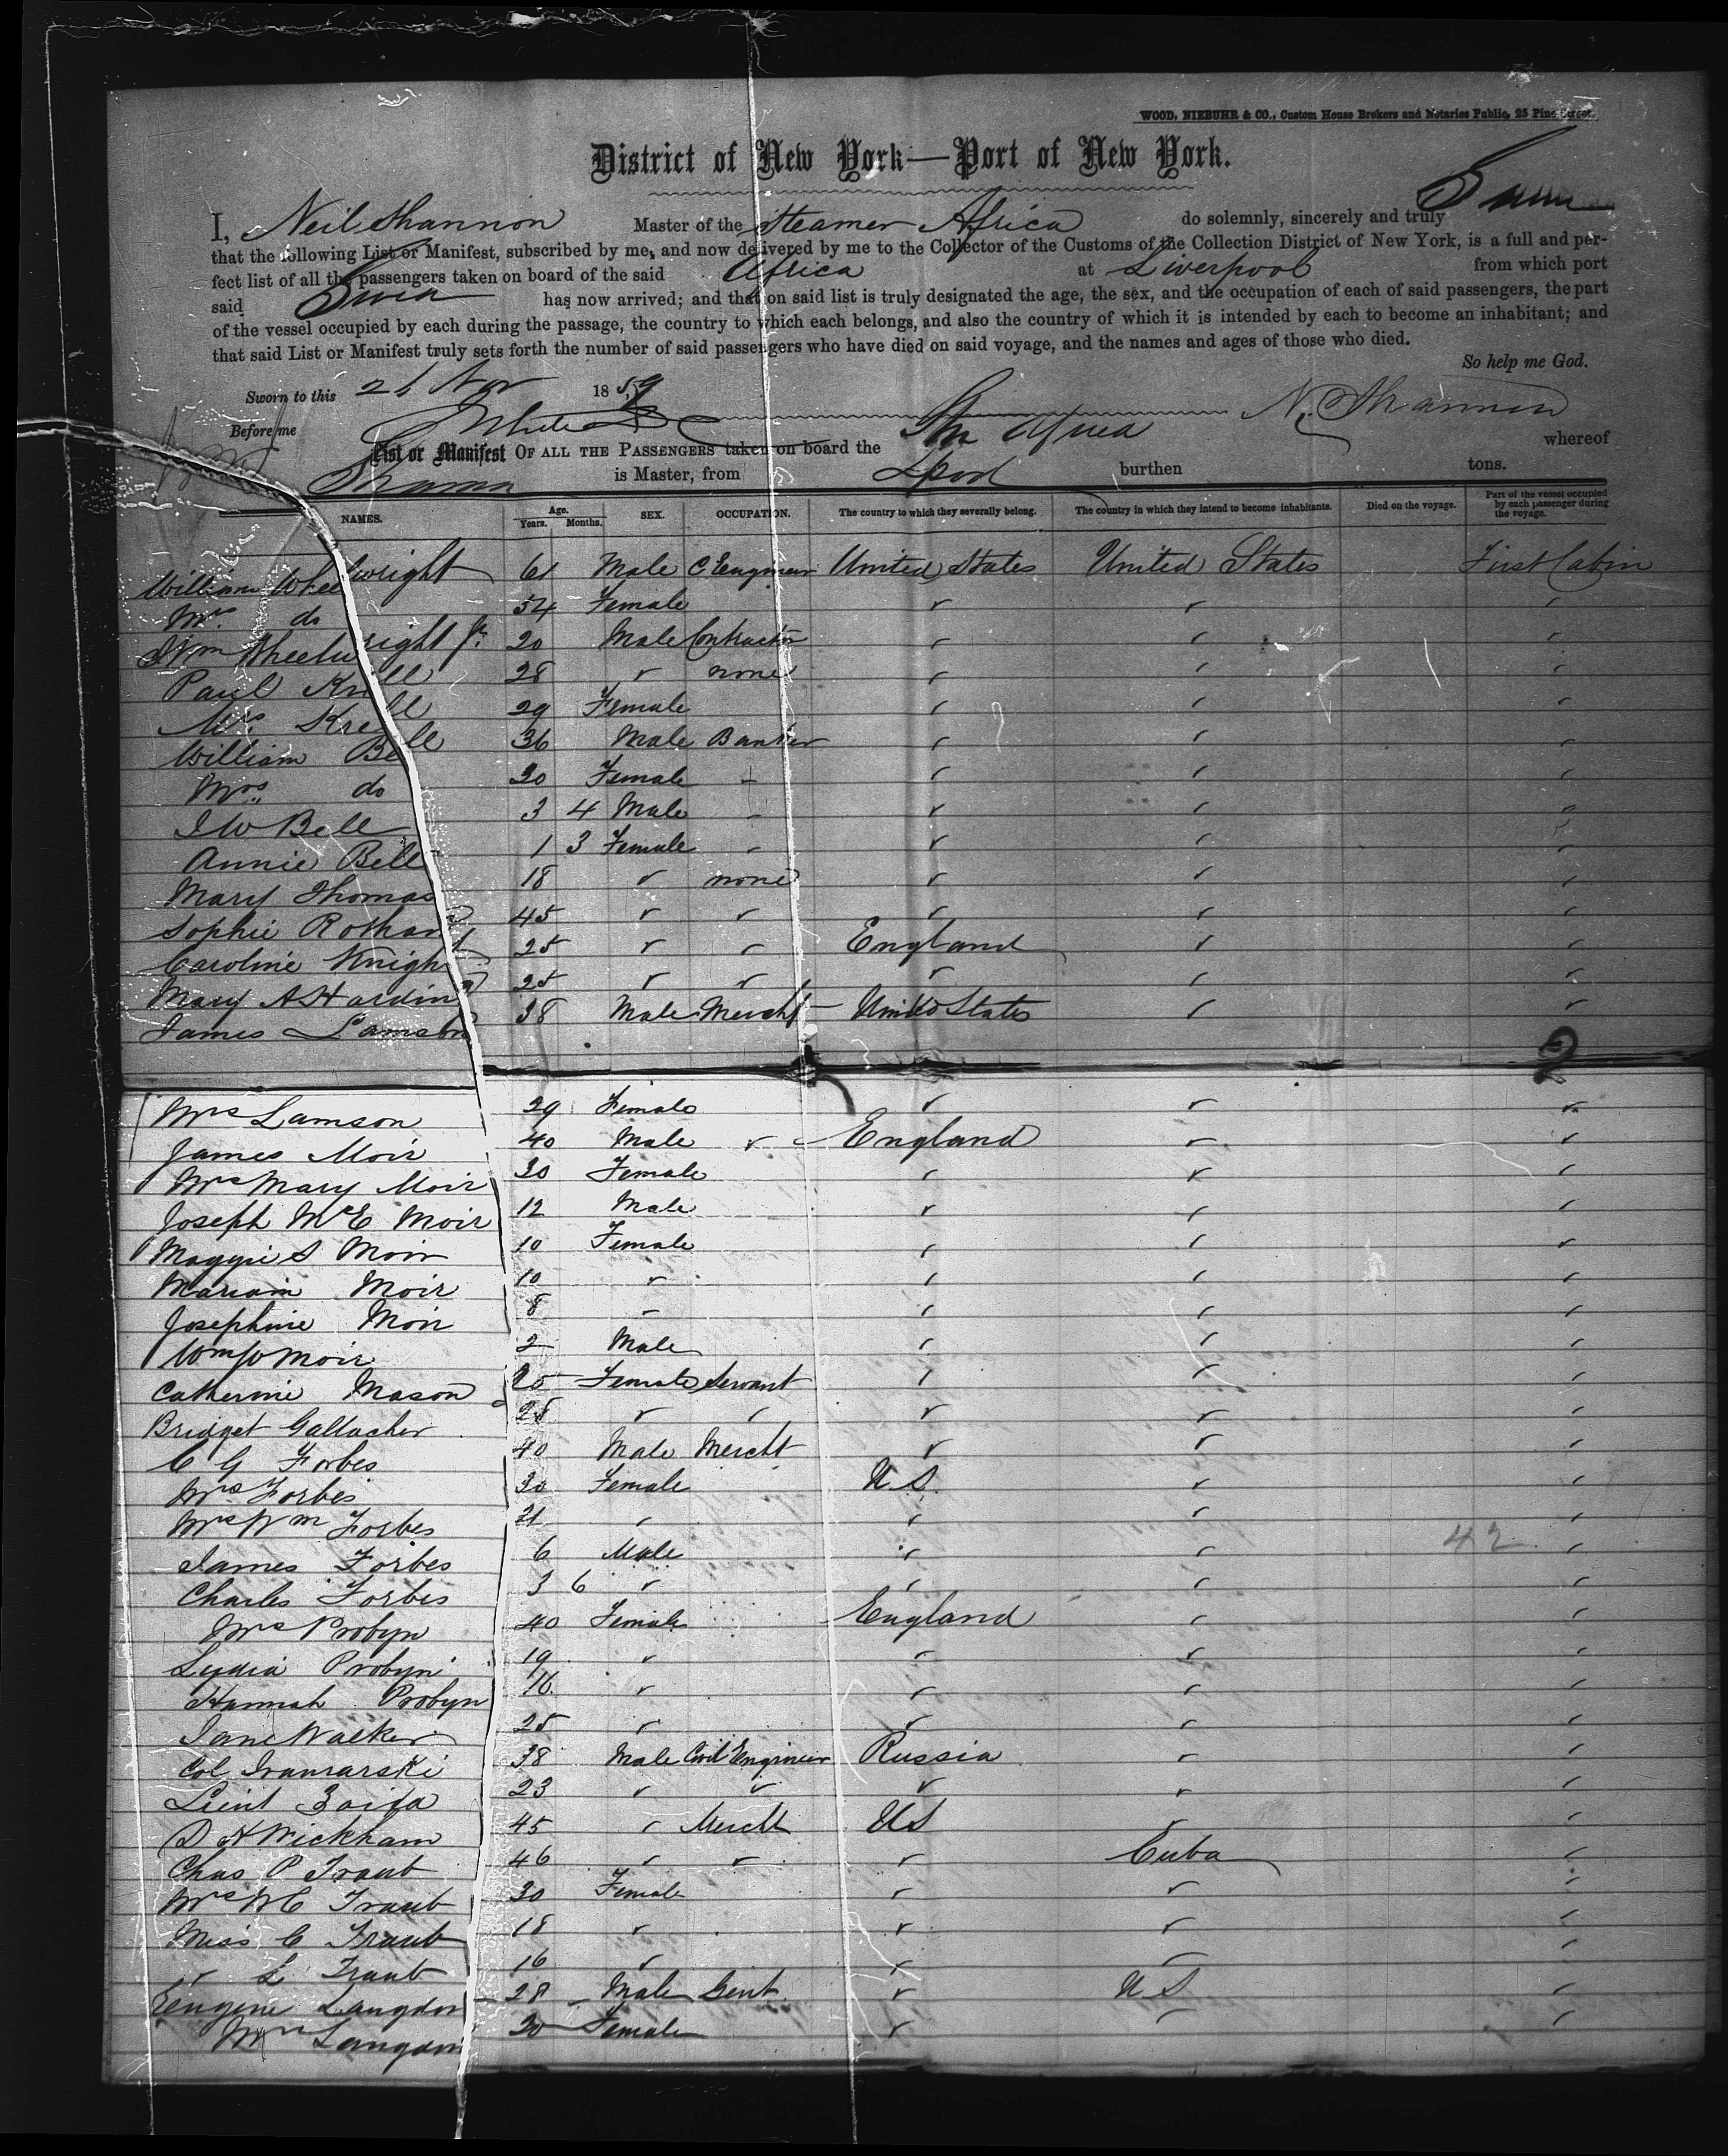 WOOD, NIEBUHR & CO., Custom House Brokers and Notaries Public, 25 Pine Street.
District of New York—Port of New York.
I, Neil Shannon Master of the Steamer Africa do solemnly, sincerely and truly Swear
that the following List or Manifest, subscribed by me, and now delivered by me to the Collector of the Customs of the Collection District of New York, is a full and per-
fect list of all the passengers taken on board of the said Africa at Liverpool from which port
said has now arrived; and that on said list is truly designated the age, the sex, and the occupation of each of said passengers, the part
of the vessel occupied by each during the passage, the country to which each belongs, and also the country of which it is intended by each to become an inhabitant; and
that said List or Manifest truly sets forth the number of said passengers who have died on said voyage, and the names and ages of those who died.
So help me God.
Sworn to this 26 Nov 1859
Before me N. Shannon
List or Manifest OF ALL THE PASSENGERS taken on board the Str Africa whereof
Shannon is Master, from Lpool burthen tons.
NAMES. Age. Years. Months. SEX. OCCUPATION. The country to which they severally belong. The country in which they intend to become inhabitants. Died on the voyage. Part of the vessel occupied by each passenger during the voyage.
William Wheelwright 61 Male C Engineer United States United States First Cabin
Mrs. do 54 Female " " "
Wm Wheelwright Jr. 20 Male Contractor " " "
Paul Krell 28 " none " " "
Mrs Krell 29 Female " " "
William Bell 36 Male Banker " " "
Mrs do 30 Female - " " "
J W Bell 3 4 Male - " " "
Annie Bell 1 3 Female - " " "
Mary Thomas 18 " none " " "
Sophie Rothand 45 " " " " "
Caroline Knight 25 " " England " "
Mary A Harding 25 " " " " "
James Lamson 38 Male Mercht United States " "
2
Mrs Lamson 29 Female " " "
James Moir 40 Male " England " "
Mrs Mary Moir 30 Female " " "
Joseph McE Moir 12 Male " " "
Maggie S Moir 10 Female " " "
Mariam Moir 10 " " " "
Josephine Moir 8 " " " "
Wm W Moir 2 Male " " "
Catherine Mason 20 Female Servant " " "
Bridget Gallacher 28 " " " " "
C G Forbes 40 Male Mercht " " "
Mrs Forbes 30 Female U S. " "
Mrs Wm Forbes 21 " " " "
James Forbes 6 Male " " 42 "
Charles Forbes 3 6 " " " "
Mrs Probyn 40 Female England " "
Lydia Probyn 19 " " " "
Hannah Probyn 16 " " " "
Jane Walker 25 " " " "
Col 38 Male Civil Engineer Russia " "
Lieut 23 " " " " "
D H Wickham 45 " Mercht US " "
Chas P Traub 46 " " " Cuba "
Mrs W C Traub 30 Female " " "
Miss C Traub 18 " " " "
" L Traub 16 " " " "
Eugene Langdon 28 Male Gent " U S "
Mrs Langdon 30 Female " " "